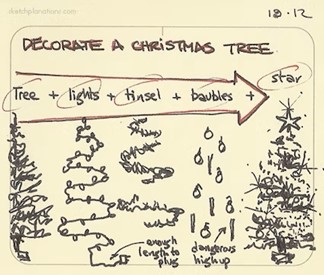 sketchplanations.com
18·12
DECORATE A CHRISTMAS TREE
Tree + lights + tinsel + baubles + star
enough
length to
plug
dangerous
high up